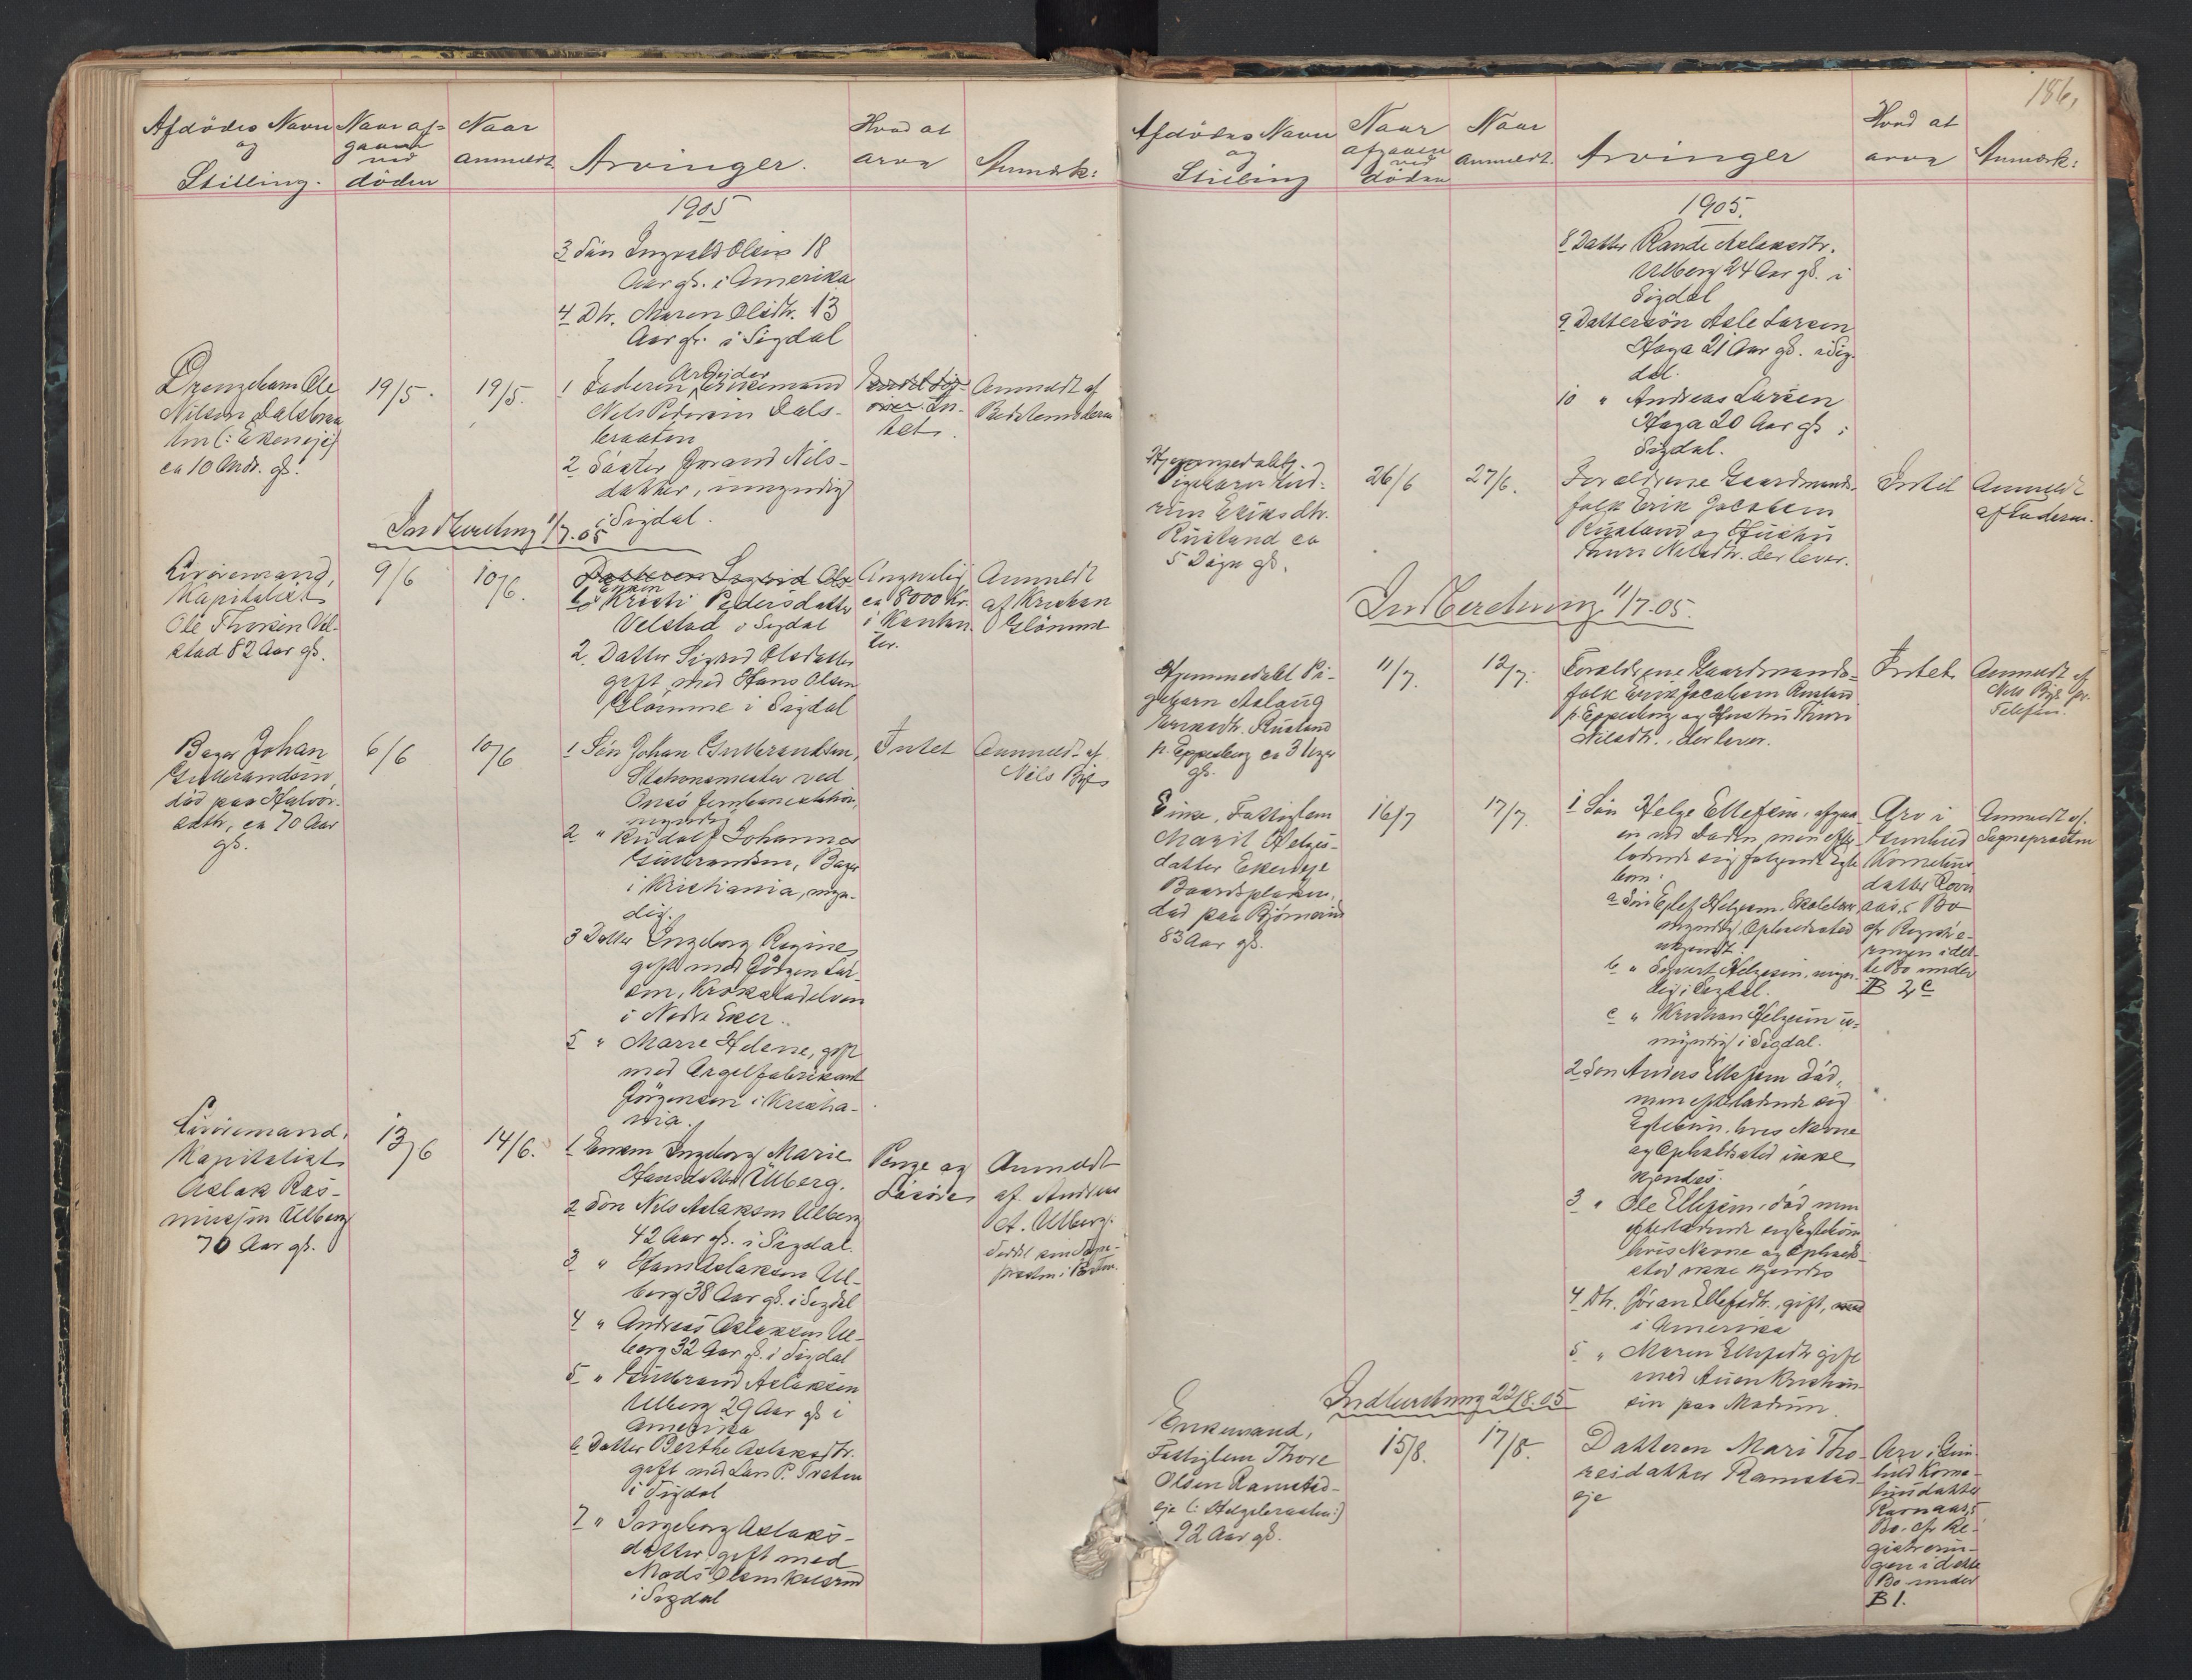 Afdödes Navn
og
Stilling.
Naar af-
gaaen
ved
döden
Naar
anmeldt.
Arvinger.
Hvad at
arve
Anmærk:
1905
3 Sön Ingvald Olsen 18
Aar gl. i Amerika
4 Dtr. Maren Olsdtr. 13
Aar gl. i Sigdal
Drengebarn Ole
Nilsen Dalsbraa
ten (: Ekerneje)
ca 10 Mdr. gl.
19/5.
19/5.
1 Faderen Arbeider Enkemand
Nils Pedersen Dals-
braaten
2 Söster Jorand Nils-
datter, umyndig
i Sigdal.
In-
tet.
Anmeldt af
Bedstemoderen
Indberetning 1/7.05
Livöremand,
Kapitalist
Ole Thoresen Vel-
stad 82 Aar gl.
9/6
10/6.
Datteren Sigrid Ols
1 Enken Kristi Pedersdatter
Velstad i Sigdal
2. Datter Sigrid Olsdatter
gift med Hans Olsen
Glömme i Sigdal
Angivelig
ca 8000 Kr.
i Kontan-
ter.
Anmeldt
af Kristian
Glömme
Bager Johan
Gulbrandsen
död paa Halvor-
seth, ca 70 Aar
gl.
6/6
10/6
1 Sön Johan Gulbrandsen,
Stationsmester ved
Onsö Jernbanestation,
myndig
2 " Rudolf Johannes
Gulbrandsen, Bager
i Kristiania, myn-
dig.
3 Datter Ingeborg Regine,
gift med Jörgen Lar-
sen, Krokstadelven
i Nedre Eker.
5 " Marie Helene, gift
med Orgelfabrikant
Jörgensen i Kristia-
nia.
Intet
Anmeldt af
Nils Bye
Livöremand,
Kapitalist
Aslak Ras-
mussen Ulberg
70 Aar gl.
13/6
14/6.
1 Enken Ingeborg Marie
Hansdatter Ulberg.
2 Sön Nils Aslaksen Ulberg
42 Aar gl. i Sigdal.
3 " Hans Aslaksen Ul-
berg 38 Aar gl. i Sigdal
4 " Andreas Aslaksen Ul-
berg 32 Aar gl. i Sigdal
5 " Gulbrand Aslaksen
Ulberg 29 Aar gl. i
Amerika
6 Datter Berthe Aslaksdtr.
gift med Lars P. Braaten
i Sigdal
7 " Ingeborg Aslaks-
datter gift med
Mads Olsen Kolsrud
i Sigdal
Penge og
Lösöre
Anmeldt
af Andreas
A. Ulberg.
Seddel som Sogne-
presten i Posten.
186,
Afdödes Navn
og
Stilling
Naar
afgaaen
ved
döden
Naar
anmeldt.
Arvinger
Hvad at
arve
Anmærk:
1905.
8 Datter Rande Aslaksdtr.
Ulberg 24 Aar gl. i
Sigdal
9 Dattersön Asle Larsen
Haga 21 Aar gl. i Sig-
dal.
10 " Andreas Larsen
Haga 20 Aar gl. i
Sigdal.
Hjemmedöbt
Pigebarn Gud-
run Eriksdtr.
Rustand ca
5 Dage gl.
26/6
27/6.
Foraldrene Gaardmands-
folk Erik Jacobsen
Rustand og Hustru
Thuri Nilsdtr. der lever.
Intet
Anmeldt
af Faderen.
Indberetning 11/7.05.
Hjemmedöbt Pi-
gebarn Aslaug
Eriksdtr. Rustand
p. Eppesberg ca 3 Uger
gl.
11/7
12/7.
Foraldrene Gaardmands-
folk Erik Jacobsen Rustand
p. Eppesberg og Hustru Thuri
Nilsdtr., der lever.
Intet
Anmeldt af
Nils Bye pr.
Telefon.
Enke, Fattiglem
Marit Helges-
datter Ekerneje
Baardsplassen,
död paa Bjömerud
83 Aar gl.
16/7
17/7.
1 Sön Helge Ellefsen, afgaa-
en ved Döden, men efter-
ladende sig fölgende Egte
börn:
a Sön Ellef Helgesen, Skolelærer
myndig, Opholdssted
ukjendt.
b " Sigvart Helgesen, myn-
dig i Sigdal.
c " Kristian Helgesen u-
myndig i Sigdal.
2 Sön Anders Ellefsen död,
men efterladende sig
Egtebörn, hvis Navne
og Opholdssted ikke
kjendes.
3 " Ole Ellefsen, död men
efterladende sig Egtebörn
hvis Navne og Opholds-
sted ikke kjendes
4 Dtr. Jöran Ellefsdtr., gift,
i Amerika
5 " Maren Ellefsdtr gift
med Auen Kristian-
sen paa Modum.
Arv i
Gunhild
Kornelius-
datter Ravn-
aas's Bo
cfr Registre-
ringen i det-
te Bo under
B 2 c
Anmeldt af
Sognepresten
Indberetning 22/8.05
Enkemand,
Fattiglem Thore
Olsen Ramstad-
eje (: Helgebraaten:)
92 Aar gl.
15/8.
17/8.
Datteren Mari Tho-
resdatter Ramstad-
eje
Arv i Gun-
hild Korne-
liusdatter
Ravnaas's
Bo. cfr Re-
gistrerin-
gen i dette
Bo under
B 1.